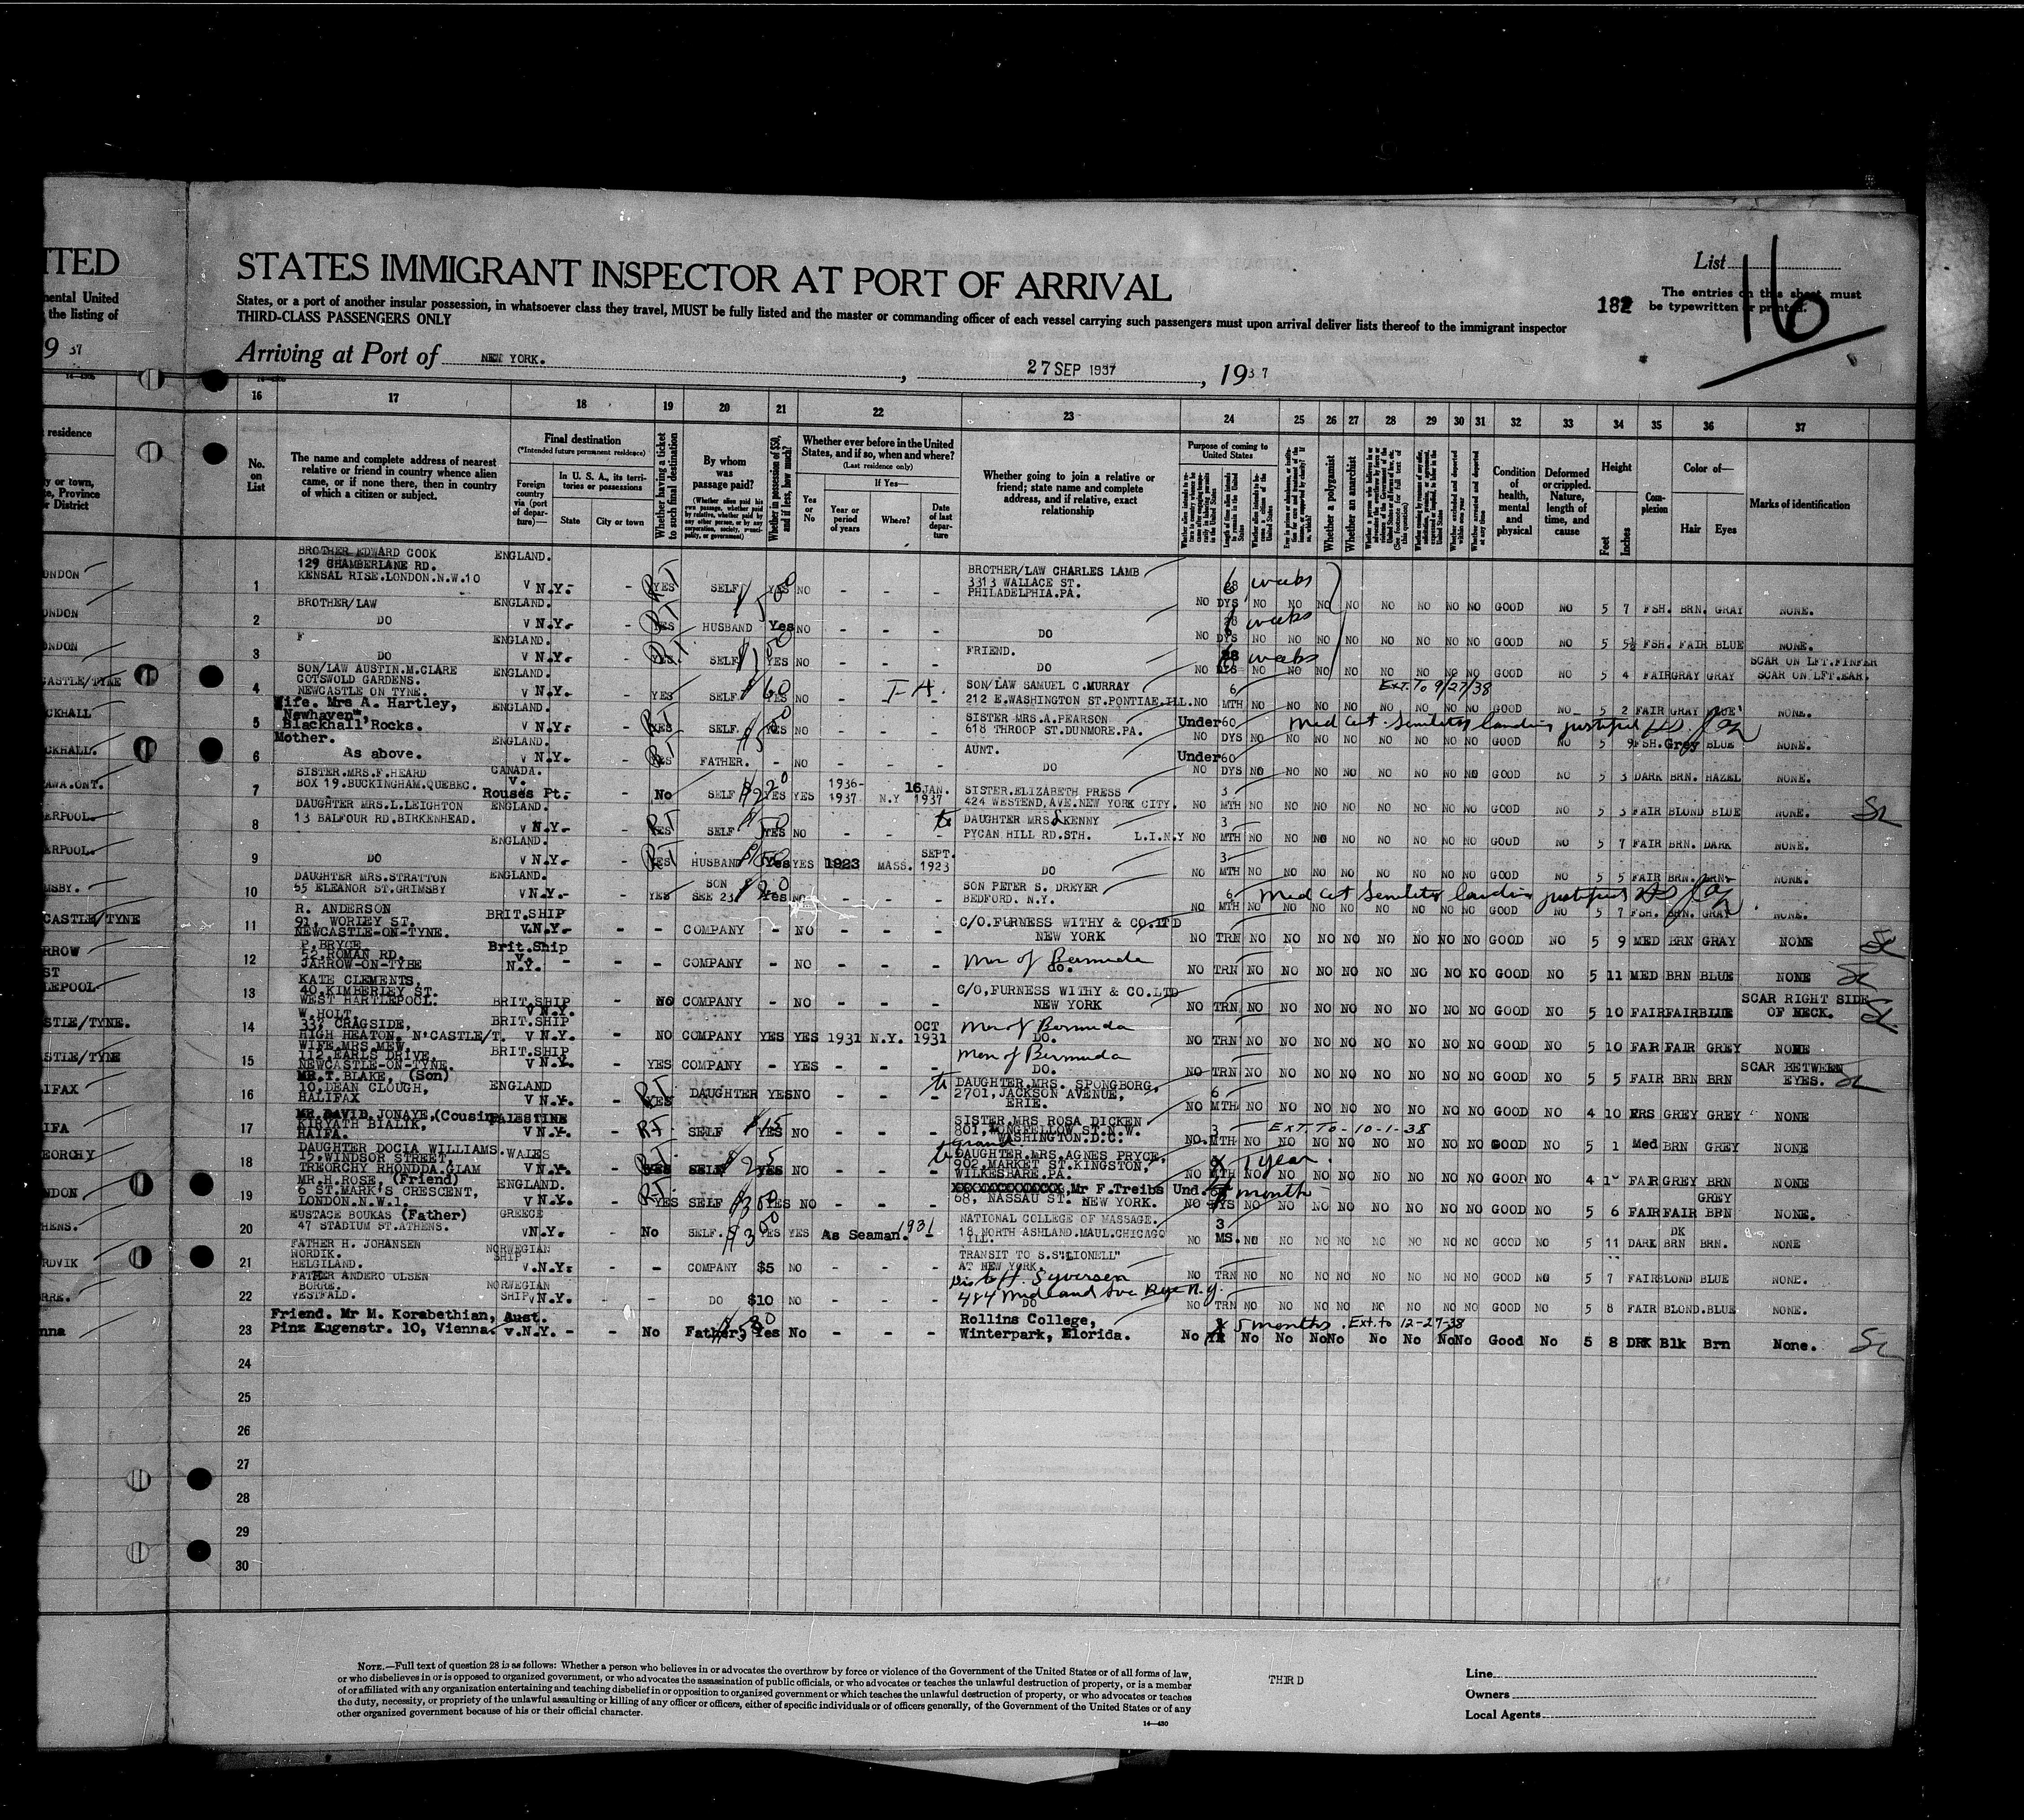 ITED
STATES IMMIGRANT INSPECTOR AT PORT OF ARRIVAL
List 16
mental United
the listing of
States, or a port of another insular possession, in whatsoever class they travel, MUST be fully listed and the master or commanding officer of each vessel carrying such passengers must upon arrival deliver lists thereof to the immigrant inspector
THIRD-CLASS PASSENGERS ONLY
182
The entries on this sheet must
be typewritten or printed.
9 37
Arriving at Port of NEW YORK. , 27 SEP 1937 , 19 37
16 17 18 19 20 21 22 23 24 25 26 27 28 29 30 31 32 33 34 35 36 37
No. on List
The name and complete address of nearest relative or friend in country whence alien came, or if none there, then in country of which a citizen or subject.
Final destination
(*Intended future permanent residence)
Foreign country via (port of departure)—
In U. S. A., its territories or possessions
State
City or town
Whether having a ticket to such final destination
By whom was passage paid?
(Whether alien paid his own passage, whether paid by relative, whether paid by any other person, or by any corporation, society, municipality, or government)
Whether in possession of $50, and if less, how much?
Whether ever before in the United States, and if so, when and where?
(Last residence only)
Yes or No
If Yes—
Year or period of years
Where?
Date of last departure
Whether going to join a relative or friend; state name and complete address, and if relative, exact relationship
Purpose of coming to United States
Whether a polygamist
Whether an anarchist
Condition of health, mental and physical
Deformed or crippled. Nature, length of time, and cause
Height
Feet
Inches
Complexion
Color of—
Hair
Eyes
Marks of identification
BROTHER EDWARD COOK ENGLAND.
129 CHAMBERLANE RD. BROTHER/LAW CHARLES LAMB
KENSAL RISE.LONDON.N.W.10 3313 WALLACE ST.
1 V N.Y. - YES SELF YES NO - - - PHILADELPHIA.PA. 6 weeks
NO DYS NO NO NO NO NO NO NO NO GOOD NO 5 7 FSH. BRN. GRAY NONE.
BROTHER/LAW ENGLAND.
2 DO V N.Y. - YES HUSBAND Yes NO - - - DO weeks
NO DYS NO NO NO NO NO NO NO NO GOOD NO 5 5½ FSH. FAIR BLUE NONE.
F ENGLAND.
3 DO V N.Y. - YES SELF YES NO - - - FRIEND. DO weeks
NO DYS NO NO NO NO NO NO NO NO GOOD NO 5 4 FAIR GRAY GRAY SCAR ON LFT.FINFER
SCAR ON LFT.EAR.
SON/LAW AUSTIN.M.CLARE ENGLAND.
COTSWOLD GARDENS. SON/LAW SAMUEL C.MURRAY 6 EXT. TO 9/27/38
4 NEWCASTLE ON TYNE. V N.Y. - YES SELF $60 YES NO - 212 E.WASHINGTON ST.PONTIAE.ILL.
NO MTH NO NO NO NO NO NO NO NO GOOD NO 5 2 FAIR GRAY BLUE NONE.
Wife. Mrs A. Hartley, ENGLAND.
Newhaven", SISTER MRS.A.PEARSON Under 60 Med Cert. Senility landing justified
5 Blackhall Rocks. V N.Y. - YES SELF YES NO - - - 618 THROOP ST.DUNMORE.PA.
NO DYS NO NO NO NO NO NO NO NO GOOD NO 5 9 FSH. Grey BLUE NONE.
Mother. ENGLAND.
6 As above. V N.Y. - YES FATHER. - NO - - - AUNT. DO Under 60
NO DYS NO NO NO NO NO NO NO NO GOOD NO 5 3 DARK BRN. HAZEL NONE.
SISTER.MRS.F.HEARD CANADA.
BOX 19.BUCKINGHAM.QUEBEC. v. SISTER.ELIZABETH PRESS 3
7 Rouses Pt. - No SELF YES YES 1936-1937 N.Y 16 JAN. 1937 424 WESTEND,AVE.NEW YORK CITY.
NO MTH NO NO NO NO NO NO NO NO GOOD NO 5 3 FAIR BLOND BLUE NONE.
DAUGHTER MRS.L.LEIGHTON ENGLAND.
13 BALFOUR RD.BIRKENHEAD. to DAUGHTER MRS KENNY 3
8 V N.Y. - YES SELF YES NO - - - PYCAN HILL RD.STH. L.I.N.Y
NO MTH NO NO NO NO NO NO NO NO GOOD NO 5 7 FAIR BRN. DARK NONE.
ENGLAND.
9 DO V N.Y. - YES HUSBAND Yes YES 1923 MASS. SEPT. 1923 DO 3
NO MTH NO NO NO NO NO NO NO NO GOOD NO 5 5 FAIR BRN. BRN. NONE.
DAUGHTER MRS.STRATTON ENGLAND.
10 55 ELEANOR ST.GRIMSBY V N.Y. - YES SON SEE 23 Yes NO - - - SON PETER S. DREYER
BEDFORD. N.Y. 6 Med Cert Senility landing justified
NO MTH NO NO NO NO NO NO NO NO GOOD NO 5 7 FSH. BRN. GRAY NONE.
R. ANDERSON BRIT.SHIP
91, WORLEY ST. C/O.FURNESS WITHY & CO.LTD
11 NEWCASTLE-ON-TYNE. V.N.Y. - - COMPANY - NO - - - NEW YORK
NO TRN NO NO NO NO NO NO NO NO GOOD NO 5 9 MED BRN GRAY NONE
P. BRYCE Brit.Ship
52,ROMAN RD. v. Mon of Bermuda
12 JARROW-ON-TYNE N.Y. - - COMPANY - NO - - - do.
NO TRN NO NO NO NO NO NO NO NO GOOD NO 5 11 MED BRN BLUE NONE
KATE CLEMENTS,
40,KIMBERLEY ST. C/O,FURNESS WITHY & CO.LTD
13 WEST HARTLEPOOL. BRIT.SHIP V N.Y. - NO COMPANY - NO - - - NEW YORK
NO TRN NO NO NO NO NO NO NO NO GOOD NO 5 10 FAIR FAIR BLUE SCAR RIGHT SIDE
OF NECK.
W.HOLT, BRIT.SHIP
33, CRAGSIDE, Mon of Bermuda
14 HIGH HEATON, N'CASTLE/T. V N.Y. - NO COMPANY YES YES 1931 N.Y. OCT 1931 DO.
NO TRN NO NO NO NO NO NO NO NO GOOD NO 5 10 FAIR FAIR GREY NONE
WIFE,MRS MEW,
112,EARLS DRIVE, BRIT.SHIP Mon of Bermuda
15 NEWCASTLE-ON-TYNE. V N.Y. - YES COMPANY - YES - - - DO.
NO TRN NO NO NO NO NO NO NO NO GOOD NO 5 5 FAIR BRN BRN SCAR BETWEEN
EYES.
MR.T. BLAKE, (Son)
10,DEAN CLOUGH, ENGLAND to DAUGHTER,MRS. SPONGBORG,
16 HALIFAX V N.Y. - YES DAUGHTER YES NO - - - 2701,JACKSON AVENUE,
ERIE. 6
NO MTH NO NO NO NO NO NO NO NO GOOD NO 4 10 FRS GREY GREY NONE
MR DAVID JONAYE,(Cousin) PALESTINE
KIRYATH BIALIK, SISTER,MRS ROSA DICKEN
17 HAIFA. V N.Y. - SELF $15 YES NO - - - 801,LONGFELLOW ST.N.W.
WASHINGTON.D.C. 3 EXT. TO - 10-1-38
NO MTH NO NO NO NO NO NO NO NO GOOD NO 5 1 Med BRN GREY NONE
DAUGHTER DOCIA WILLIAMS. WALES
15,WINDSOR STREET, to grand DAUGHTER,MRS.AGNES PRYCE,
18 TREORCHY RHONDDA.GLAM V N.Y. - YES SELF $25 YES NO - - - 902,MARKET ST.KINGSTON,
WILKESBARE.PA. 1 year.
NO MTH NO NO NO NO NO NO NO NO GOOD NO 4 FAIR GREY BRN NONE
MR.H.ROSE, (Friend) ENGLAND.
6 ST.MARK'S CRESCENT, Mr F.Treibs Und. month
19 LONDON.N.W.1. V N.Y. - YES SELF YES NO - - - 68, NASSAU ST. NEW YORK.
NO DYS NO NO NO NO NO NO NO NO GOOD NO 5 6 FAIR FAIR GREY BRN NONE.
EUSTACE BOUKAS (Father) GREECE
47 STADIUM ST.ATHENS. NATIONAL COLLEGE OF MASSAGE.
20 V N.Y. - No SELF. YES YES As Seaman. 1931 - 18 NORTH ASHLAND.MAUL.CHICAGO
ILL. 3
NO MS. NO NO NO NO NO NO NO NO GOOD NO 5 11 DARK DK BRN BRN. NONE
FATHER H. JOHANSEN
NORDIK. NORWEGIAN SHIP TRANSIT TO S.S"LIONELL"
21 HELGILAND. V.N.Y. - - COMPANY $5 NO - - - AT NEW YORK.
NO TRN NO NO NO NO NO NO NO NO GOOD NO 5 7 FAIR BLOND BLUE NONE.
FATHER ANDERO OLSEN
BORRE. NORWEGIAN Syversen
22 VESTFALD. SHIP V N.Y. - - DO $10 NO - - - 484 Midland Ave Rye N.Y.
DO
NO TRN NO NO NO NO NO NO NO NO GOOD NO 5 8 FAIR BLOND.BLUE NONE.
Friend. Mr M. Korabethian, Aust. Rollins College, 5 months. Ext. to 12-27-38
23 Pinz Eugenstr. 10, Vienna. v.N.Y. - - No Father, Yes No - - - Winterpark, Florida.
No No No No No No No No No Good No 5 8 DRK Blk Brn None.
24
25
26
27
28
29
30
NOTE.—Full text of question 28 is as follows: Whether a person who believes in or advocates the overthrow by force or violence of the Government of the United States or of all forms of law,
or who disbelieves in or is opposed to organized government, or who advocates the assassination of public officials, or who advocates or teaches the unlawful destruction of property, or is a member
of or affiliated with any organization entertaining and teaching disbelief in or opposition to organized government or which teaches the unlawful destruction of property, or who advocates or teaches
the duty, necessity, or propriety of the unlawful assaulting or killing of any officer or officers, either of specific individuals or of officers generally, of the Government of the United States or of any
other organized government because of his or their official character.
14—430
THIRD
Line
Owners
Local Agents